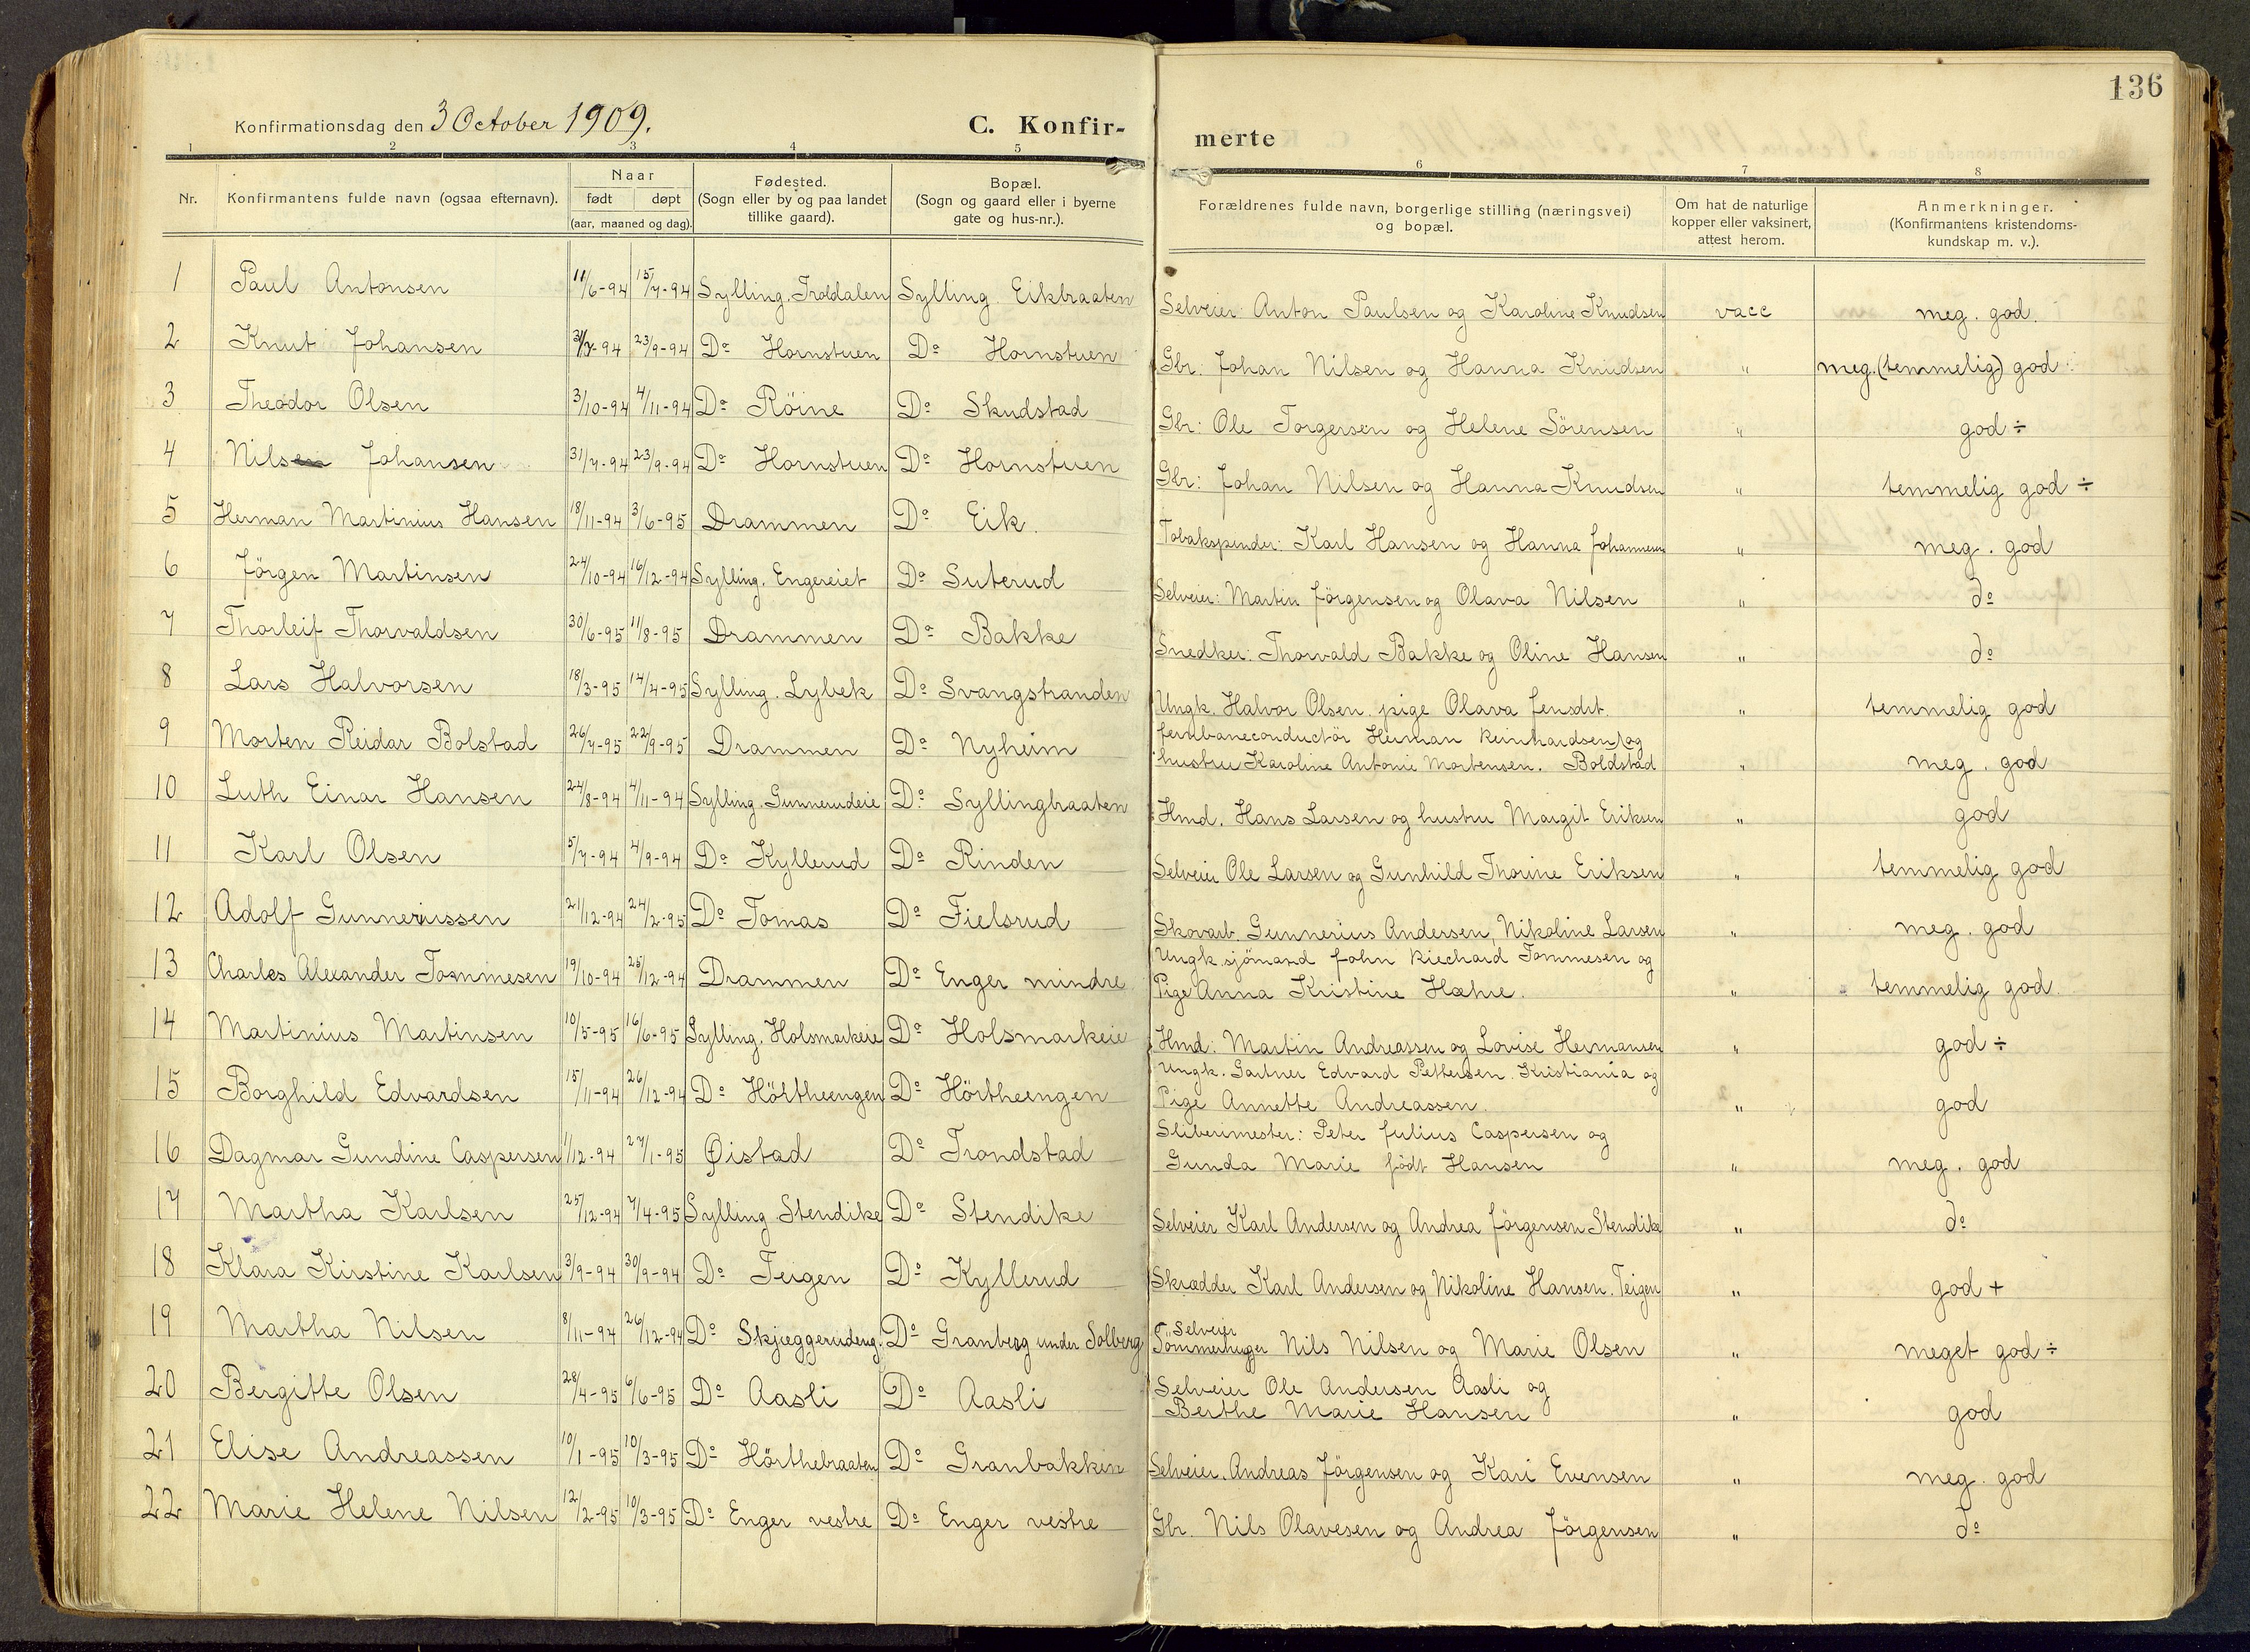 136
Konfirmationsdag den 3 October 1909.
C. Konfir-
merte
1 2 3 4 5 6 7 8
Nr.
Konfirmantens fulde navn (ogsaa efternavn).
Naar
født døpt
(aar, maaned og dag).
Fødested.
(Sogn eller by og paa landet
tillike gaard).
Bopæl.
(Sogn og gaard eller i byerne
gate og hus-nr.).
Forældrenes fulde navn, borgerlige stilling (næringsvei)
og bopæl.
Om hat de naturlige
kopper eller vaksinert,
attest herom.
Anmerkninger.
(Konfirmantens kristendoms-
kundskap m. v.).
1 Paul Antonsen 11/6-94 15/7-94 Sylling. Troldalen Sylling. Eikbraaten Selveier: Anton Paulsen og Karoline Knudsen vacc meg. god.
2 Knut Johansen 31/7-94 23/9-94 Do Hornstuen Do Hornstuen Gbr: Johan Nilsen og Hanna Knudsen " meg. (temmelig) god
3 Theodor Olsen 3/10-94 4/11-94 Do Röine Do Skudstad Gbr: Ole Torgersen og Helene Sörensen " god ÷
4 Nilsen Johansen 31/7-94 23/9-94 Do Hornstuen Do Hornstuen Gbr: Johan Nilsen og Hanna Knudsen " temmelig god ÷
5 Herman Martinius Hansen 18/11-94 3/6-95 Drammen Do Eik. Tobakspinder: Karl Hansen og Hanna Johannesen " meg. god
6 Jörgen Martinsen 24/10-94 16/12-94 Sylling. Engereiet Do Suterud Selveier: Martin Jörgensen og Olava Nilsen " do
7 Thorleif Thorvaldsen 30/6-95 11/8-95 Drammen Do Bakke Snedker: Thorvald Bakke og Oline Hansen " do
8 Lars Halvorsen 18/3-95 14/4-95 Sylling. Lybek Do Svangstranden Ungk. Halvor Olsen. pige Olava Jensdt. " temmelig god
9 Morten Reidar Bolstad 26/7-95 22/9-95 Drammen Do Nyheim Jernbaneconductör Herman Reinhardsen og
hustru Karoline Antonie Mortensen. Boldstad " meg. god
10 Luth Einar Hansen 24/8-94 4/11-94 Sylling. Gunnerudeie Do Syllingbraaten Hmd. Hans Larsen og hustru Margit Eriksen " god
11 Karl Olsen 5/7-94 4/9-94 Do Kyllerud Do Rinden Selveier Ole Larsen og Gunhild Thorine Eriksen " temmelig god
12 Adolf Gunneriussen 21/12-94 24/2-95 Do Tomas Do Fielsrud Skovarb. Gunnerius Andersen, Nikoline Larsen " meg. god
13 Charles Alexander Tommesen 19/10-94 25/12-94 Drammen Do Enger mindre Ungk. sjömand John Riechard Tommesen og
Pige Anna Kristine Hæhre. " temmelig god.
14 Martinius Martinsen 10/5-95 16/6-95 Sylling. Holsmarkeie Do Holsmarkeie Hmd: Martin Andreassen og Lovise Hermansen " god ÷
15 Borghild Edvardsen 15/11-94 26/12-94 Do Hörtheengen Do Hörtheengen Ungk. Gartner Edvard Pettersen. Kristiania og
Pige Annette Andreassen. " god
16 Dagmar Gundine Caspersen 1/12-94 27/1-95 Øistad Do Trondstad Sliberimester: Peter Julius Caspersen og
Gunda Marie födt Hansen " meg. god
17 Martha Karlsen 25/12-94 7/4-95 Sylling Stendike Do Stendike Selveier Karl Andersen og Andrea Jörgensen Stendike " do
18 Klara Kirstine Karlsen 3/9-94 30/9-94 Do Teigen Do Kyllerud Skrædder Karl Andersen og Nikoline Hansen. Teigen " god +
19 Martha Nilsen 8/11-94 26/12-94 Do Skjæggerudeng. Do Granberg under Solberg Selveier
Tömmerhugger Nils Nilsen og Marie Olsen " meget god ÷
20 Bergitte Olsen 28/4-95 6/6-95 Do Aasli Do Aasli Selveier Ole Andersen Aasli og
Berthe Marie Hansen " god
21 Elise Andreassen 10/1-95 10/3-95 Do Hörthebraaten Do Granbakken Selveier. Andreas Jörgensen og Kari Evensen " meg. god
22 Marie Helene Nilsen 12/2-95 10/3-95 Do Enger vestre Do Enger vestre Gbr. Nils Olavesen og Andrea Jörgensen " do